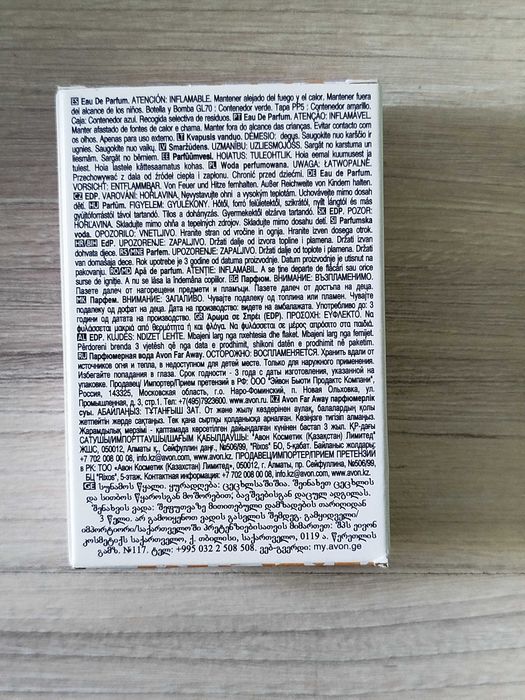 ES Eau De Parfum. ATENCIÓN: INFLAMABLE. Mantener alejado del fuego y el calor. Mantener fuera
del alcance de los niños. Botella y Bomba GL70 : Contenedor verde. Tapa PP5 : Contenedor amarillo.
Caja: Contenedor azul. Recogida selectiva de residuos. PT Eau de Parfum. ATENÇÃO: INFLAMÁVEL.
Manter afastado de fontes de calor e chama. Manter fora do alcance das crianças. Evitar contacto com
os olhos. Apenas para uso externo. LT Kvapusis vanduo. DĖMESIO: degus. Saugokite nuo karščio ir
ugnies. Saugokite nuo vaikų. LV Smaržūdens. UZMANĪBU: UZLIESMOJOŠS. Sargāt no karstuma un
liesmām. Sargāt no bērniem. EE Parfüümvesi. HOIATUS: TULEOHTLIK. Hoia eemal kuumusest ja
tulest. Hoia lastele kättesaamatus kohas. PL Woda perfumowana. UWAGA: ŁATWOPALNE.
Przechowywać z dala od źródeł ciepła i zapłonu. Chronić przed dziećmi. DE Eau de Parfum.
VORSICHT: ENTFLAMMBAR. Von Feuer und Hitze fernhalten. Außer Reichweite von Kindern halten.
CZ EDP. VAROVÁNÍ: HOŘLAVINA, Nevystavujte ohni a vysokým teplotám. Uchovávejte mimo dosah
dětí. HU Parfüm. FIGYELEM: GYÚLÉKONY. Hőtől, forró felületektől, szikrától, nyílt lángtól és más
gyújtóforrástól távol tartandó. Tilos a dohányzás. Gyermekektől elzárva tartandó. SK EDP. POZOR:
HORĽAVINA. Skladujte mimo ohňa a tepelných zdrojov. Skladujte mimo dosahu detí. SI Parfumska
voda. OPOZORILO: VNETLJIVO. Hranite stran od vročine in ognja. Hranite izven dosega otrok.
HR/BIH EdP. UPOZORENJE: ZAPALJIVO. Držati dalje od izvora topline i plamena. Držati izvan
dohvata djece. RS/MNE Parfem. UPOZORENJE: ZAPALJIVO. Držati dalje od toplote i plamena. Držati
van domašaja dece. Rok upotrebe je 3 godine od datuma proizvodnje. Datum proizvodnje je utisnut na
pakovanju. RO/MD Apă de parfum. ATENȚIE: INFLAMABIL. A se ține departe de flăcări sau orice
surse de igniție. A nu se lăsa la îndemâna copiilor. BG Парфюм. ВНИМАНИЕ: ВЪЗПЛАМЕНИМО.
Пазете далеч от нагорещени предмети и пламъци. Пазете далеч от достъпа на деца.
MK Парфем. ВНИМАНИЕ: ЗАПАЛИВО. Чувајте подалеку од топлина или пламен. Чувајте
подалеку од дофат на деца. Дата на производство: видете на амбалажата. Употребливо до: 3
години од датата на производство. GR Άρωμα σε Σπρέι (EDP). ΠΡΟΣΟΧΗ: ΕΥΦΛΕΚΤΟ. Να
φυλάσσεται μακριά από θερμότητα ή και φλόγα. Να φυλάσσεται σε μέρος απρόσιτο στα παιδιά.
AL EDP. KUJDES: NDIZET LEHTE. Mbajeni larg nga nxehtesia dhe flaket. Mbajeni larg nga femijet.
Përdoreni brenda 3 vjetësh që nga data e prodhimit, shikoni datën e prodhimit në paketim.
RU Парфюмерная вода Avon Far Away. ОСТОРОЖНО: ВОСПЛАМЕНЯЕТСЯ. Хранить вдали от
источников огня и тепла, в недоступном для детей месте. Только для наружного применения.
Избегайте попадания в глаза. Срок годности - 3 года с даты изготовления, указанной на
упаковке. Продавец/ Импортер/Прием претензий в РФ: ООО "Эйвон Бьюти Продактс Компани",
Россия, 143325, Московская область, г.о. Наро-Фоминский, п. Новая Ольховка, ул.
Промышленная, д. 3, стр.1. Тел: +7(495)7923600. www.avon.ru. KZ Avon Far Away парфюмерлік
суы. АБАЙЛАҢЫЗ: ТҰТАНҒЫШ ЗАТ. От және жылу көздерінен аулақ, балалардың қолы
жетпейтін жерде сақтаңыз. Тек қана сыртқы қолданысқа арналған. Көзіңізге тигізіп алмаңыз.
Жарамдылық мерзімі - қаптамада көрсетілген дайындалған күнінен бастап 3 жыл. ҚР-дағы
САТУШЫ/ИМПОРТТАУШЫ/ШАҒЫМ ҚАБЫЛДАУШЫ: "Авон Косметикс (Қазақстан) Лимитед"
ЖШС, 050012, Алматы қ., Сейфуллин даңғ., №506/99, "Rixos" БО, 5-қабат. Байланыс жолдары:
+7 702 008 00 08, info.kz@avon.com, www.avon.kz. ПРОДАВЕЦ/ИМПОРТЕР/ПРИЕМ ПРЕТЕНЗИЙ
в РК: ТОО «Авон Косметикс (Казахстан) Лимитед», 050012, г. Алматы, пр. Сейфуллина, №506/99,
БЦ "Rixos", 5-этаж. Контактная информация: +7 702 008 00 08, info.kz@avon.com, www.avon.kz
GE სუნამოს წყალი. ყურადღება: ცეცხლსაშიშია. შეინახეთ ცეცხლის
და სითბოს წყაროსგან მოშორებით; ბავშვებისგან დაცულ ადგილას.
შენახვის ვადა: შეფუთვაზე მითითებული დამზადების თარიღიდან
3 წელი. არ გამოიყენოთ ვადის გასვლის შემდეგ. გამყიდველი/
იმპორტიორი/საქართველოში პრეტენზიებისათვის მიმართეთ: შპს ეივონ
კოსმეტიქს საქართველო, ქ. თბილისი, საქართველო, 0119 ა. წერეთლის
გამზ. №117. ტელ: +995 032 2 508 508. ვებ-გვერდი: my.avon.ge